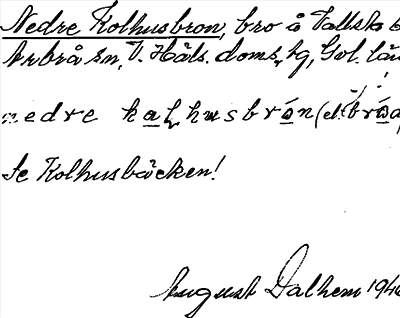 Nedre Kolhusbron, bro å Vallsbo b
Arbrå sn, V. Häls. doms. hg, Gvl. län
nedre kaļhusbrón (el. bróa
Se Kolhusbäcken!
August Dalhem 1946